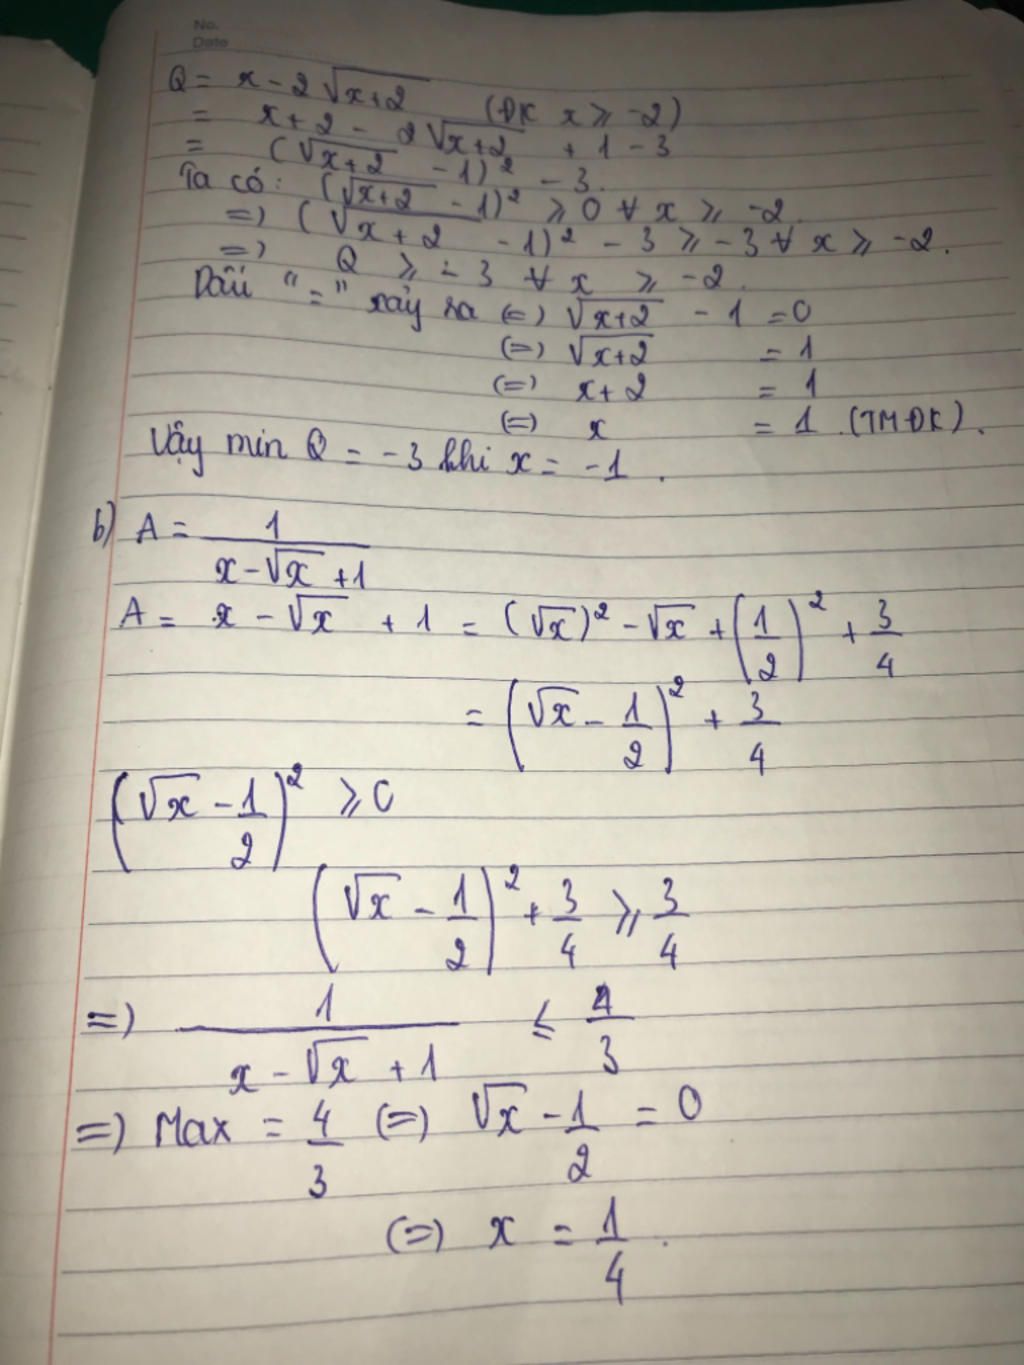 No.
Date
Q = x - 2√(x+2) (ĐK x ≥ -2)
= x + 2 - 2√(x+2) + 1 - 3
= (√(x+2) - 1)² - 3.
Ta có: (√(x+2) - 1)² ≥ 0 ∀ x ≥ -2
=> (√(x+2) - 1)² - 3 ≥ -3 ∀ x ≥ -2.
=> Q ≥ -3 ∀ x ≥ -2.
Dấu "=" xảy ra (=) √(x+2) - 1 = 0
(=) √(x+2) = 1
(=) x + 2 = 1
(=) x = 1 (TMĐK).
Vậy min Q = -3 khi x = -1.
b) A = 1/(x - √x + 1)
A = x - √x + 1 = (√x)² - √x + (1/2)² + 3/4
= (√x - 1/2)² + 3/4
(√x - 1/2)² ≥ 0
(√x - 1/2)² + 3/4 ≥ 3/4
=) 1/(x - √x + 1) ≤ 4/3
=) Max = 4/3 (=) √x - 1/2 = 0
(=) x = 1/4.